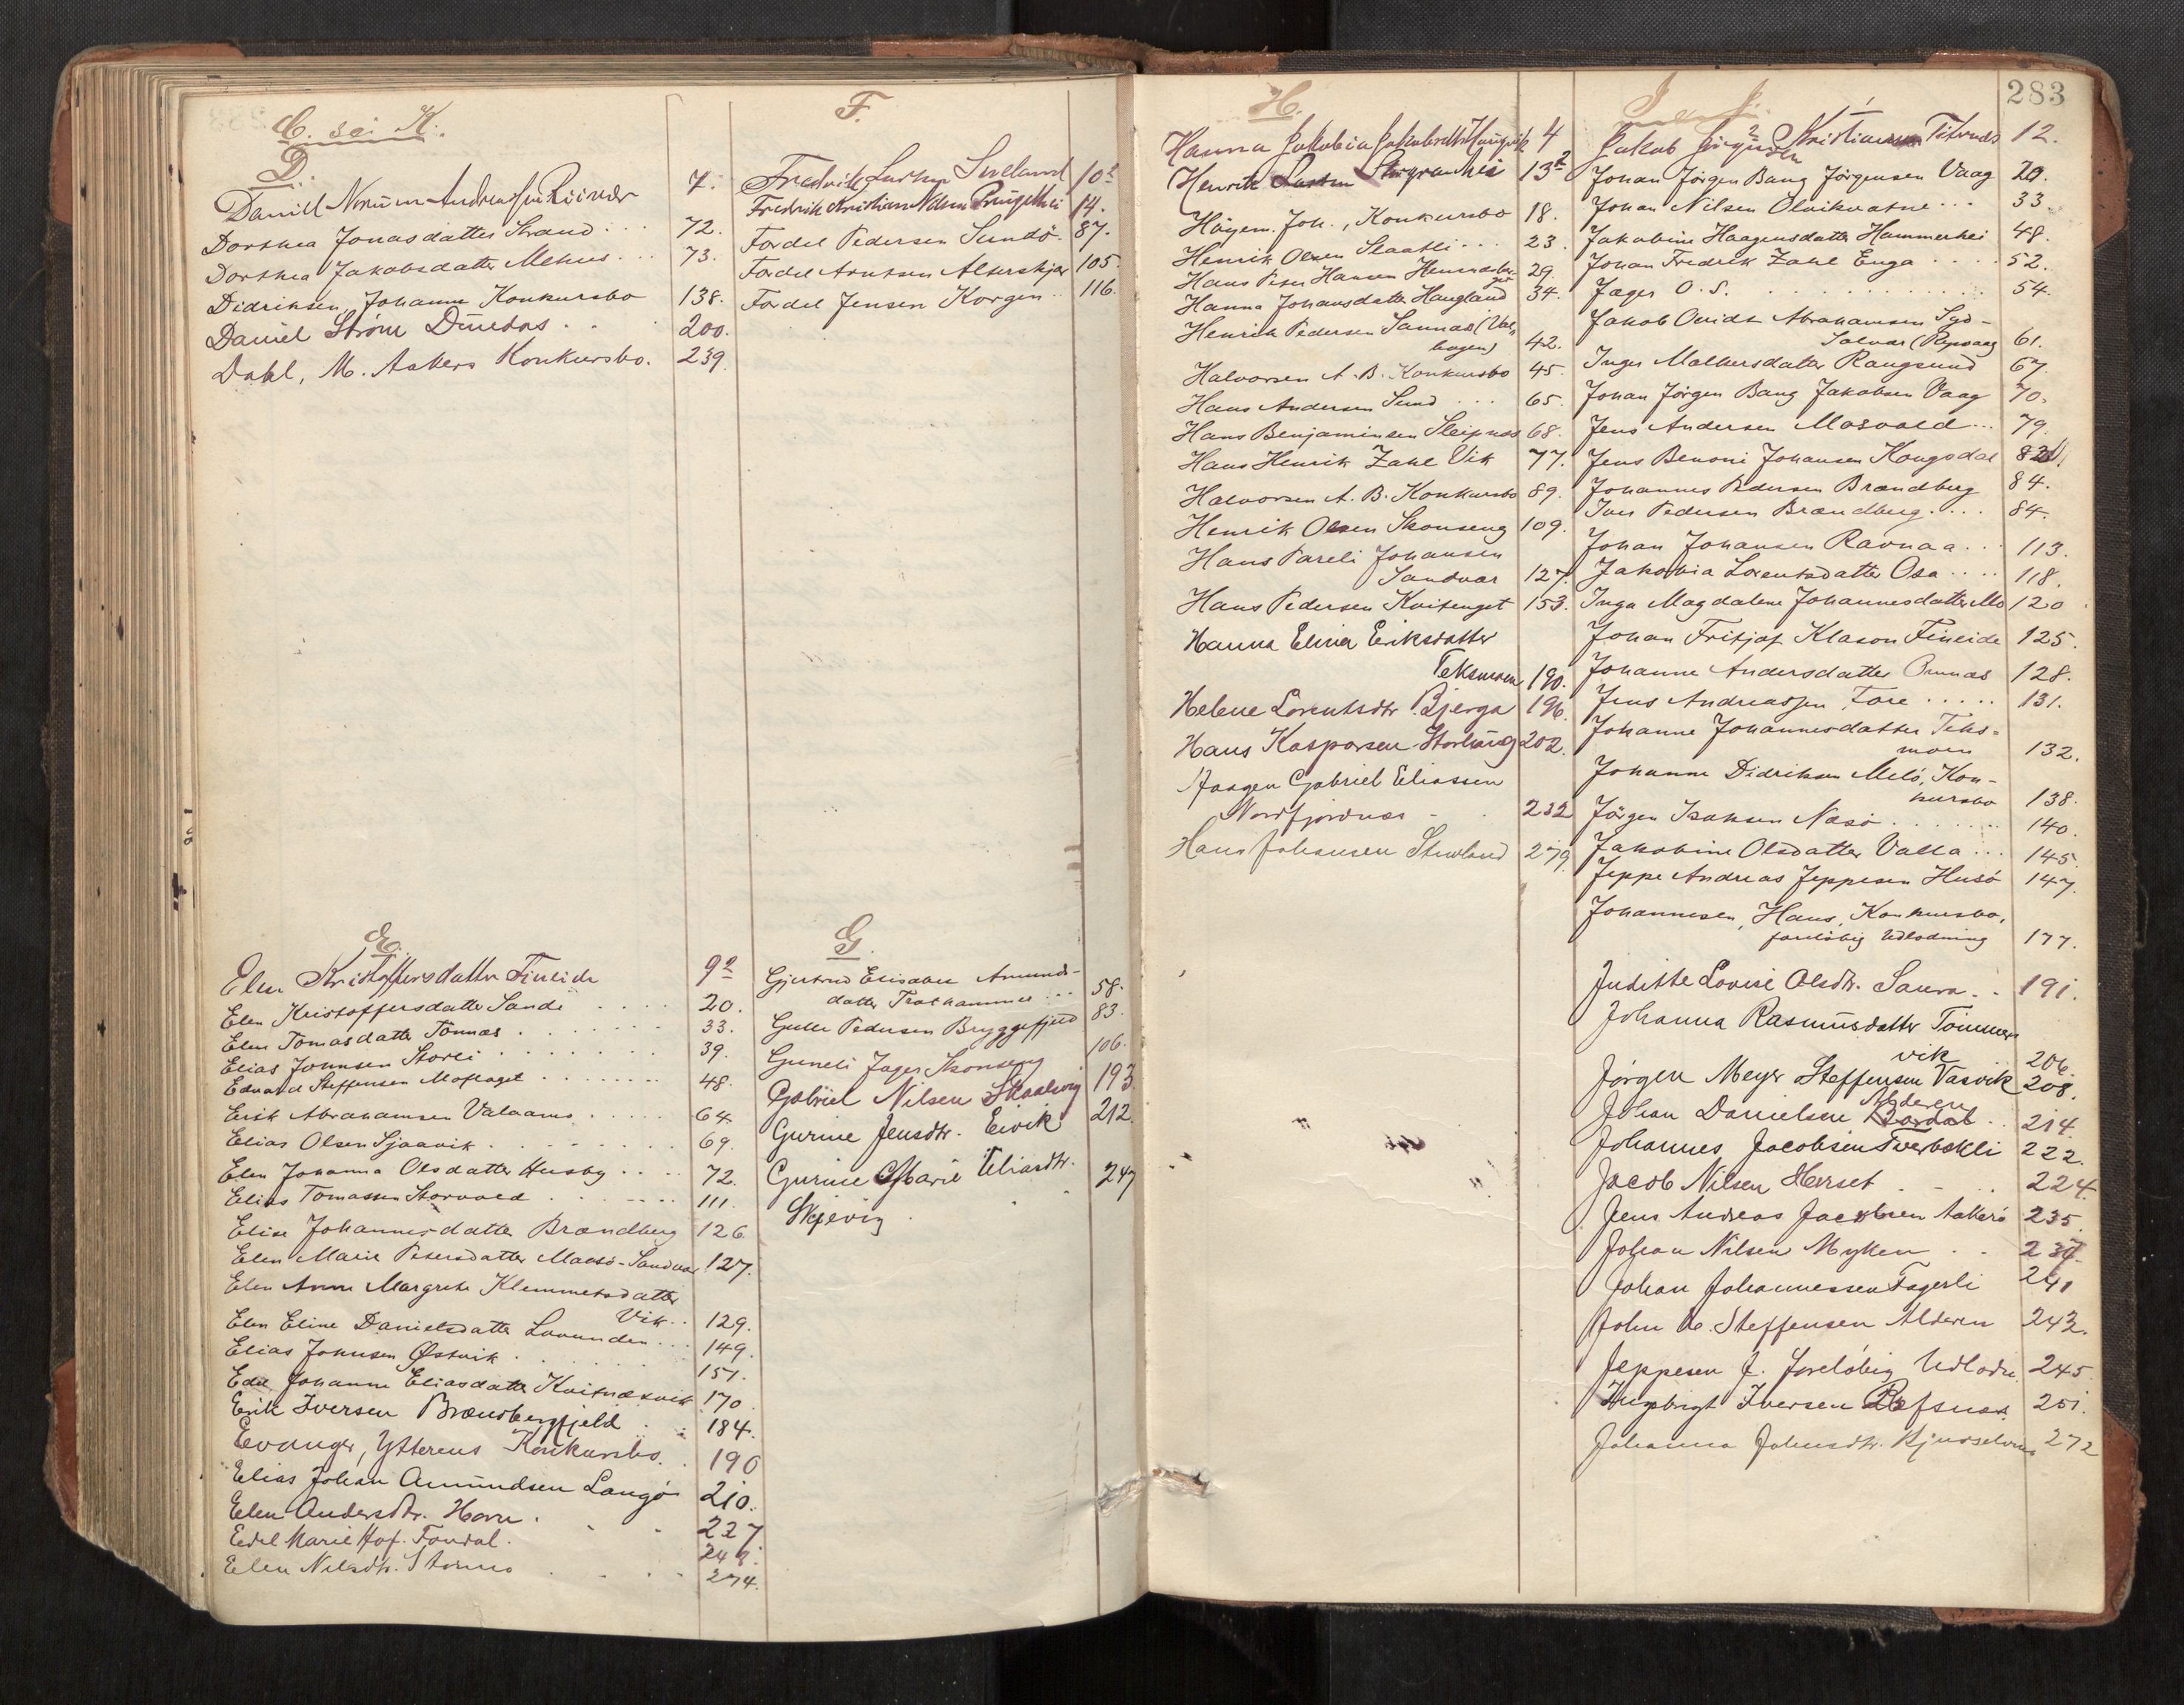 C. se K.
D.
Daniel Norum Andreassen 7.
Dorthea Jonasdatter Strand... 72.
Dorthea Jakobsdatter Mehus... 73.
Didriksen, Johanne Konkursbo 138.
Daniel Strøm Dunedas.. 200.
Dahl, M. Aakers Konkursbo. 239.
E.
Elen Kristoffersdatter Fineide 9²
Elen Kristoffersdatter Sande 20.
Elen Tomasdatter Tonnæs 33.
Elias Johnsen Storli 39.
Edvard Steffensen Moflaget 48.
Erik Abrahamsen Valaamo 64.
Elias Olsen Sjaavik 69.
Elen Johanna Olsdatter Husby 72.
Elias Tomassen Storvold 111.
Elise Johannesdatter Brændberg 126
Elen Marie Petersdatter Maasö-Sandvær 127.
Elen Anne Margrete Klemmetsdatter
Vik.. 129.
Elen Eline Danielsdatter Lovunden... 149.
Elias Johnsen Østvik 151.
Edel Johanne Eliasdatter Kvitnæsvik 170
Erik Iversen Brændbergfjeld 184.
Evanger, Ytterens Konkursbo. 190
Elias Johan Amundsen Langö 210.
Elen Andersdtr. Horn 227.
Edel Marie Hof. Fondal. 248.
Elen Nilsdtr. Stormo 274.
F.
Fredrik Larsen Sveland 10²
Fredrik Kristian Nilsen 14.
Fordel Pedersen Sundö. 87.
Fordel Arntsen Alterskjær 105.
Fordel Jensen Korgen.. 116.
G.
Gjertrud Elisabet Amunds-
datter Trathammer... 58.
Gulle Pedersen Bryggefjeld 83.
Guneli Jager Skonseng 106.
Gabriel Nilsen Skaalvig 193.
Gurine Jensdtr. Eivik 212.
Gurine Marie Eliasdtr. 247
Skjevig
H.
Hanna Jakobia Jakobsdtr Haugvik 4
Henrik Larsen Storgranhei 13²
Höyem. Joh., Konkursbo 18.
Henrik Olsen Slaatli... 23.
Hans Peter Hansen Hemnæsber-
get 29.
Hanna Johansdatter Haugland 34.
Henrik Pedersen Sannæs (Val-
hagen) 42.
Halvorsen A. B. Konkursbo 45.
Hans Andersen Sund... 65.
Hans Benjaminsen Sleipnæs 68.
Hans Henrik Zahl Vik 77.
Halvorsen A. B. Konkursbo 89.
Henrik Olsen Skonseng 109.
Hans Pareli Johansen
Sandvær 127.
Hans Pedersen Kvitenget 153.
Hanna Elina Eriksdatter
Teksmoen 190.
Helene Lorentsdtr Bjerga 196.
Hans Kasparsen Storhaug 202.
Haagen Gabriel Eliassen
Nordfjordnæs - 232
Hans Johansen Straland 279.
283
I e J.
Jakob Jörgensen Kristiansen 12.
Johan Jörgen Bang Jörgensen Vaag 20.
Johan Nilsen Olvikvatne... 33.
Jakobine Haagensdatter Hammerhei 48.
Johan Fredrik Zahl Enga.... 52.
Jæger O. S. 54.
Jakob Ovidt Abrahamsen Syd-
Solvær (Repvaag) 61.
Inger Malkersdatter Rangsund 67.
Johan Jörgen Bang Jakobsen Vaag 70.
Jens Andersen Mosvold... 79.
Jens Benoni Johansen Kongsdal 82
Johannes Pedersen Brændberg 84.
Iver Pedersen Brændberg.... 84.
Johan Johansen Ravnaa... 113.
Jakobia Lorentsdatter Osa.... 118.
Inga Magdalene Johannesdatter Mo 120
Johan Fritjof Klason Fineide 125.
Johanne Andersdatter Ornnæs 128.
Jens Andreassen Fore..... 131.
Johanne Johannesdatter Teks-
moen 132.
Johanne Didriksen Melö, Kon-
kursbo 138.
Jörgen Isaksen Næsö 140.
Jakobine Olsdatter Valla... 145.
Jeppe Andreas Jeppesen Husö 147.
Johannesen, Hans, Konkursbo,
foreløbig Udlodning 177.
Juditte Lovise Olsdtr. Saura.. 191.
Johanna Rasmusdatter Tömmer-
vik 206.
Jørgen Meyer Steffensen Vasvik 208.
Alderen
Johan Danielsen Dordal.. 214.
Johannes Jacobsen Tverbækli 222.
Jacob Nilsen Herset 224.
Jens Andreas Jacobsen Aakerö 235.
Johan Nilsen Myken 237.
Johan Johannessen Fagerli 241
John U. Steffensen Alderen 243.
Jeppesen J. foreløbig Udlodn. 245.
Ingebrigt Iversen Refsnæs. 251.
Johanna Johnsdtr. 272